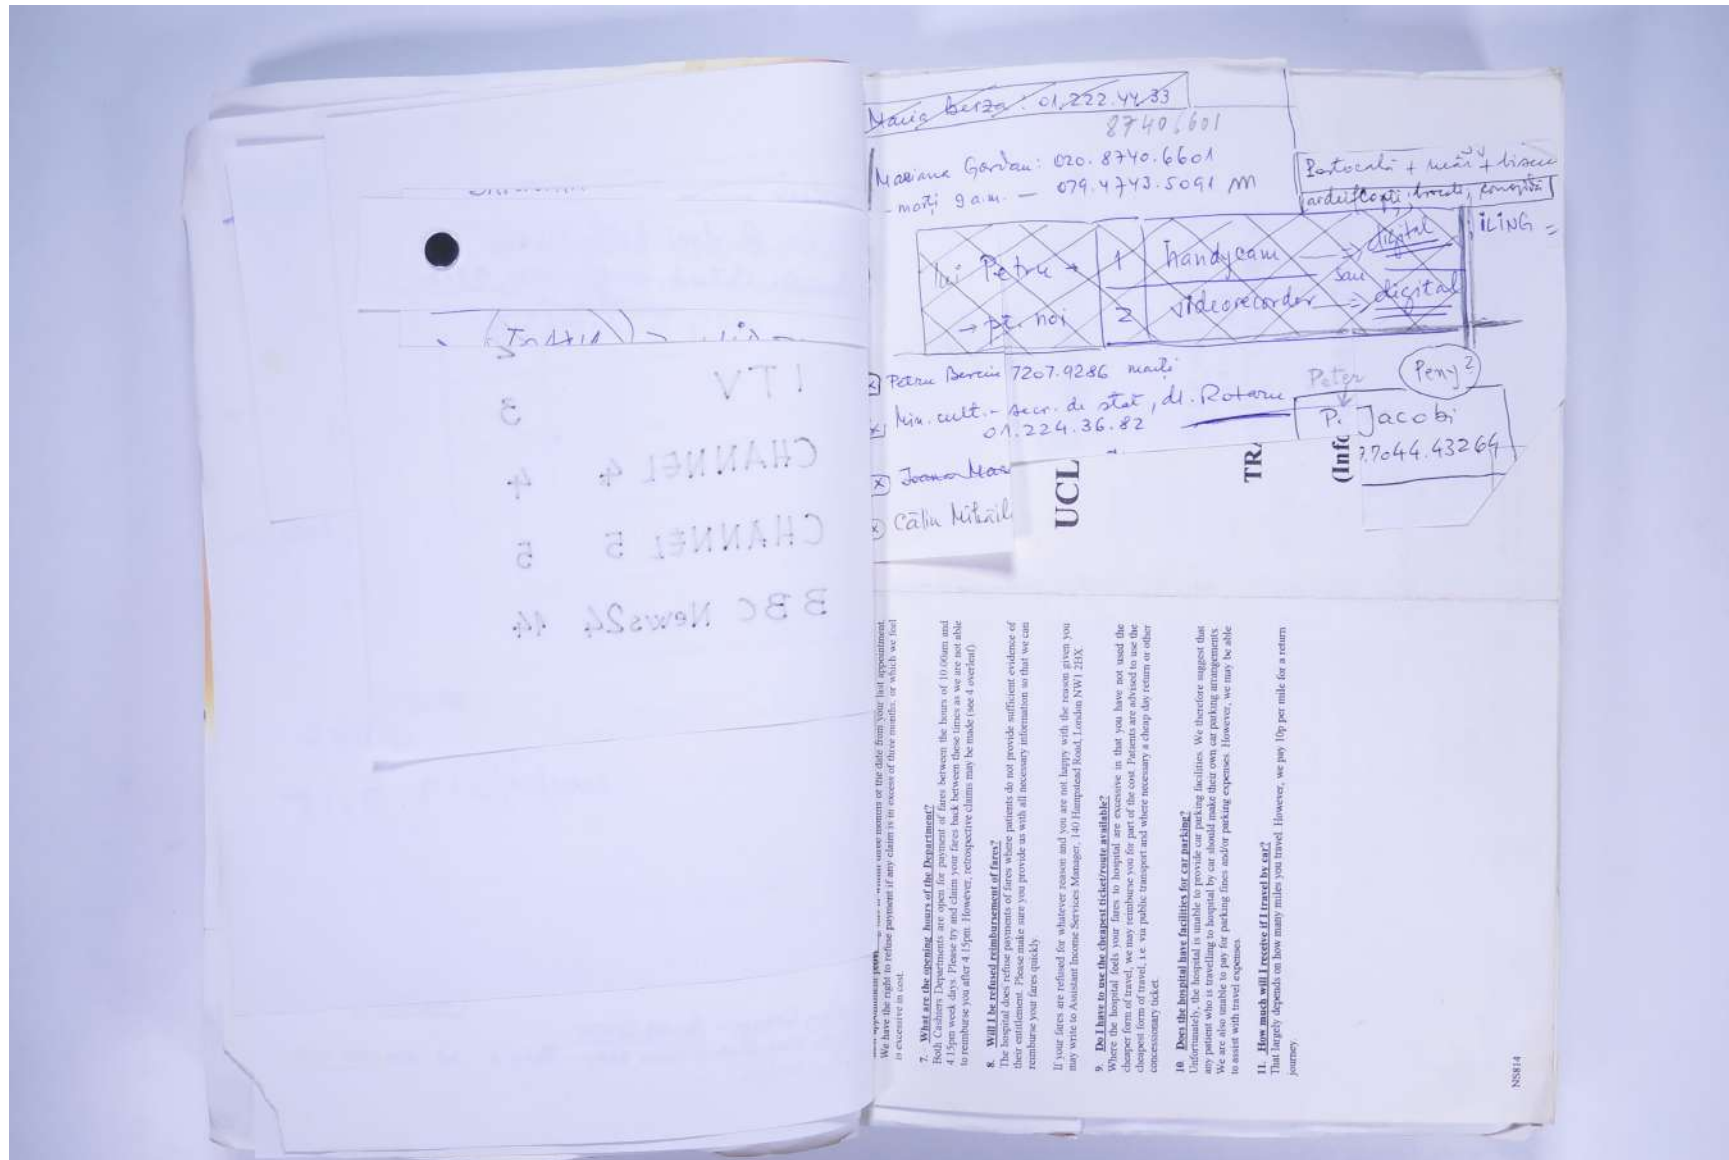 ITV 3
CHANNEL 4 4
CHANNEL 5 5
BBC News24 44
Maria Berza: 01.222.44.33
87406601
Mariana Gordan: 020.8740.6601
- marți 9 a.m. — 079.4743.5091 M
Portocală + măr +
ILING =
lui Petru → 1 handycam → digital
sau
→ pt. noi 2 videorecorder → digital
Petru Berciu 7207.9286 marți
Min. cult. - secr. de stat, dl. Rotaru
01.224.36.82
Peter Peny?
P. Jacobi
7044.43264
Ioana
Călin Mihăil
UCL
TRA
(Info
We have the right to refuse payment if any claim is in excess of three months, or which we feel
is excessive in cost.
7. What are the opening hours of the Department?
Both Cashiers Departments are open for payment of fares between the hours of 10.00am and
4.15pm week days. Please try and claim your fares back between these times as we are not able
to reimburse you after 4.15pm. However, retrospective claims may be made (see 4 overleaf).
8. Will I be refused reimbursement of fares?
The hospital does refuse payments of fares where patients do not provide sufficient evidence of
their entitlement. Please make sure you provide us with all necessary information so that we can
reimburse your fares quickly.
If your fares are refused for whatever reason and you are not happy with the reason given you
may write to Assistant Income Services Manager, 140 Hampstead Road, London NW1 2HX
9. Do I have to use the cheapest ticket/route available?
Where the hospital feels your fares to hospital are excessive in that you have not used the
cheaper form of travel, we may reimburse you for part of the cost. Patients are advised to use the
cheapest form of travel, i.e. via public transport and where necessary a cheap day return or other
concessionary ticket.
10. Does the hospital have facilities for car parking?
Unfortunately, the hospital is unable to provide car parking facilities. We therefore suggest that
any patient who is travelling to hospital by car should make their own car parking arrangements.
We are also unable to pay for parking fines and/or parking expenses. However, we may be able
to assist with travel expenses.
11. How much will I receive if I travel by car?
That largely depends on how many miles you travel. However, we pay 10p per mile for a return
journey.
NS814